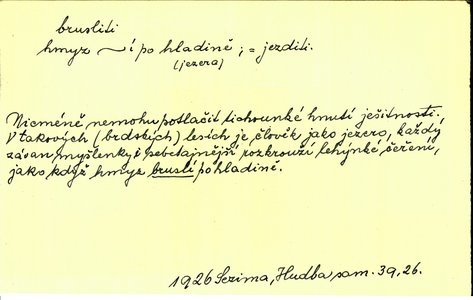 brusliti
hmyz ~í po hladině ; = jezditi.
(jezera)
Nicméně nemohu potlačit tichounké hnutí ješitnosti.
V takových (brdských) lesích je člověk jako jezero, každý
závan myšlenky i sebetajnější rozkrouží lehýnké čeření,
jako když hmyz bruslí po hladině.
1926 Sezima, Hudba sam. 39, 26.